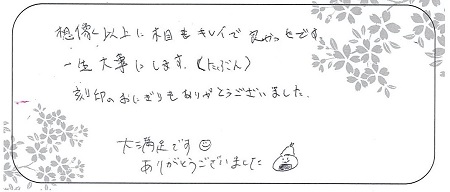 想像以上に木目もキレイで良かったです
一生大事にします。(たぶん)
刻印のおにぎりもありがとうございました。
大満足です
ありがとうございました